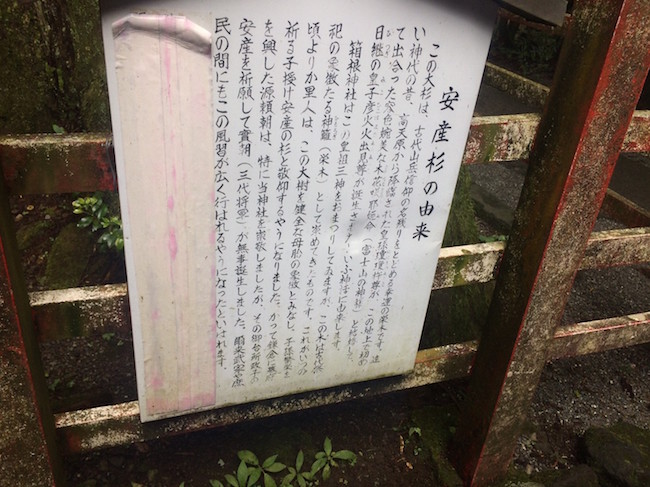 安産杉の由来
この大杉は、古代山岳信仰の名残りをとどめる幸運の栄木です。遠
い神代の昔、高天原から降臨された瓊瓊杵尊が、この地上で初め
て出合った容色婉美な木花咲耶姫命（富士山の神霊）と結婚し、
日継の皇子彦火火出見尊が誕生されたといふ神話に由来します。
箱根神社はこの皇祖三神をおまつりしてゐますが、この木は古代祭
祀の象徴たる神籬（栄木）として崇めてきたものです。これがいつの
頃よりか里人は、この大樹を健全な母胎の象徴とみなし、子孫繁栄を
祈る子授け安産の杉と敬仰するやうになりました。かつて鎌倉に幕府
を興した源頼朝は、特に当神社を崇敬しましたが、その御台所政子の
安産を祈願して実朝（三代将軍）が無事誕生しました。爾来武家や庶
民の間にもこの風習が広く行はれるやうになったといはれます。